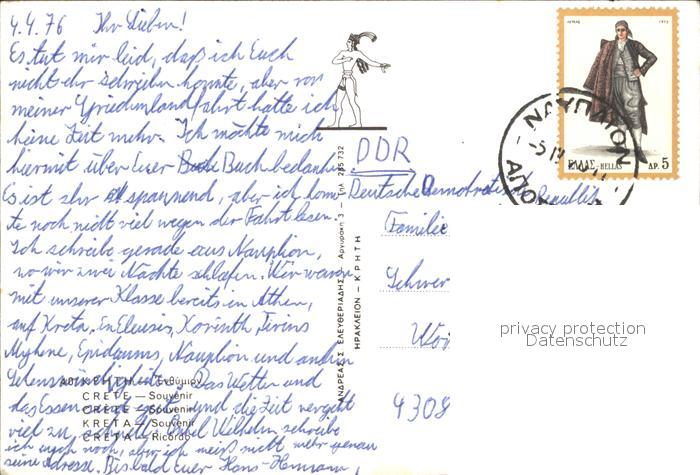 4.4.76 Ihr Lieben!
Es tut mir leid, daß ich Euch
nicht ehr schreiben konnte, aber vor
meiner Griechenlandfahrt hatte ich
keine Zeit mehr. Ich möchte mich
hiermit über Euer Buch bedanken.
Es ist sehr spannend, aber ich konn-
te noch nicht viel wegen der Fahrt lesen.
Ich schreibe gerade aus Nauplion,
wo wir zwei Nächte schlafen. Wir waren
mit unserer Klasse bereits in Athen,
auf Kreta, in Eleusis, Korinth, Tirins
Mykene, Epidauros, Nauplion und andren
Sehenswürdigkeiten. Das Wetter und
das Essen sind gut und die Zeit vergeht
viel zu schnell. Onkel Wilhelm schreibe
ich auch noch, aber ich weiß nicht mehr genau
seine Adresse. Bis bald Euer Hans-Hermann
ΚΡΗΤΗ — Ἐνθύμιον
CRETE — Souvenir
CRETE — Souvenir
KRETA — Souvenir
CRETA — Ricordo
ΑΝΔΡΕΑΣ ΕΛΕΥΘΕΡΙΑΔΗΣ Αργυράκη 3 — Τηλ. 285 732
ΗΡΑΚΛΕΙΟΝ - ΚΡΗΤΗ
ΕΛΛΑΣ-HELLAS ΔΡ. 5
ΝΑΥΠΛΙΟΝ
-5 IV
DDR
Deutsche Demokratische Republik
Familie
Schwer
4308
privacy protection
Datenschutz